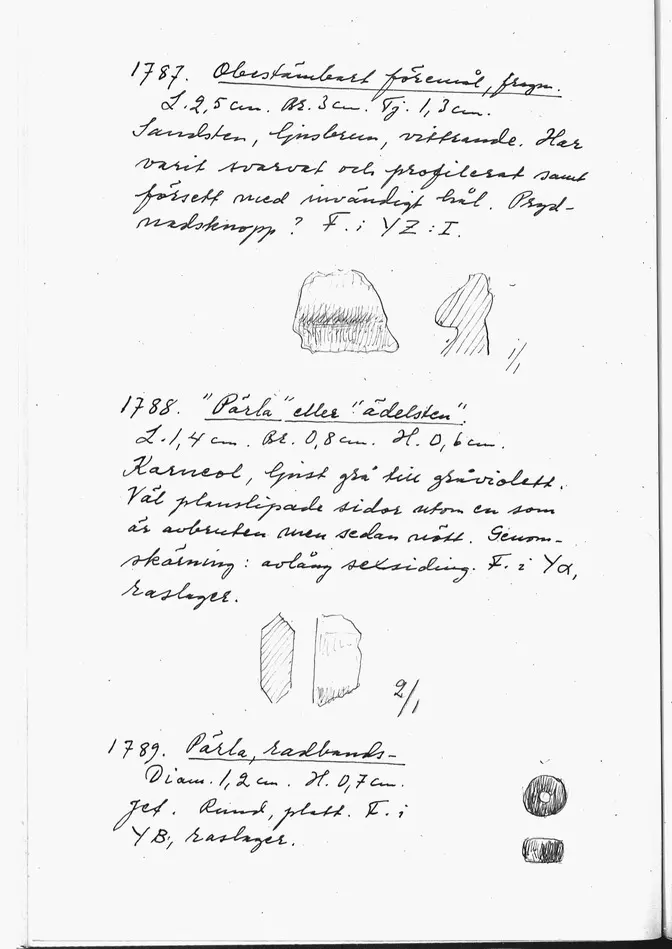 1787. Obestämbart föremål, fragm.
L. 2,5 cm. Br. 3 cm. Tj. 1,3 cm.
Sandsten, ljusbrun, vittrande. Har
varit svarvat och profilerat samt
försett med invändigt hål. Pryd-
nadsknopp? F. i YZ:I.
1/1
1788. "Pärla" eller "ädelsten".
L. 1,4 cm. Br. 0,8 cm. H. 0,6 cm.
Karneol, ljust grå till gråviolett.
Väl planslipade sidor utom en som
är avbruten men sedan nött. Genom-
skärning: avlång sexsiding. F. i Yα,
raslager.
2/1
1789. Pärla, radbands-
Diam. 1,2 cm. H. 0,7 cm.
Jet. Rund, platt. F. i
YB, raslager.